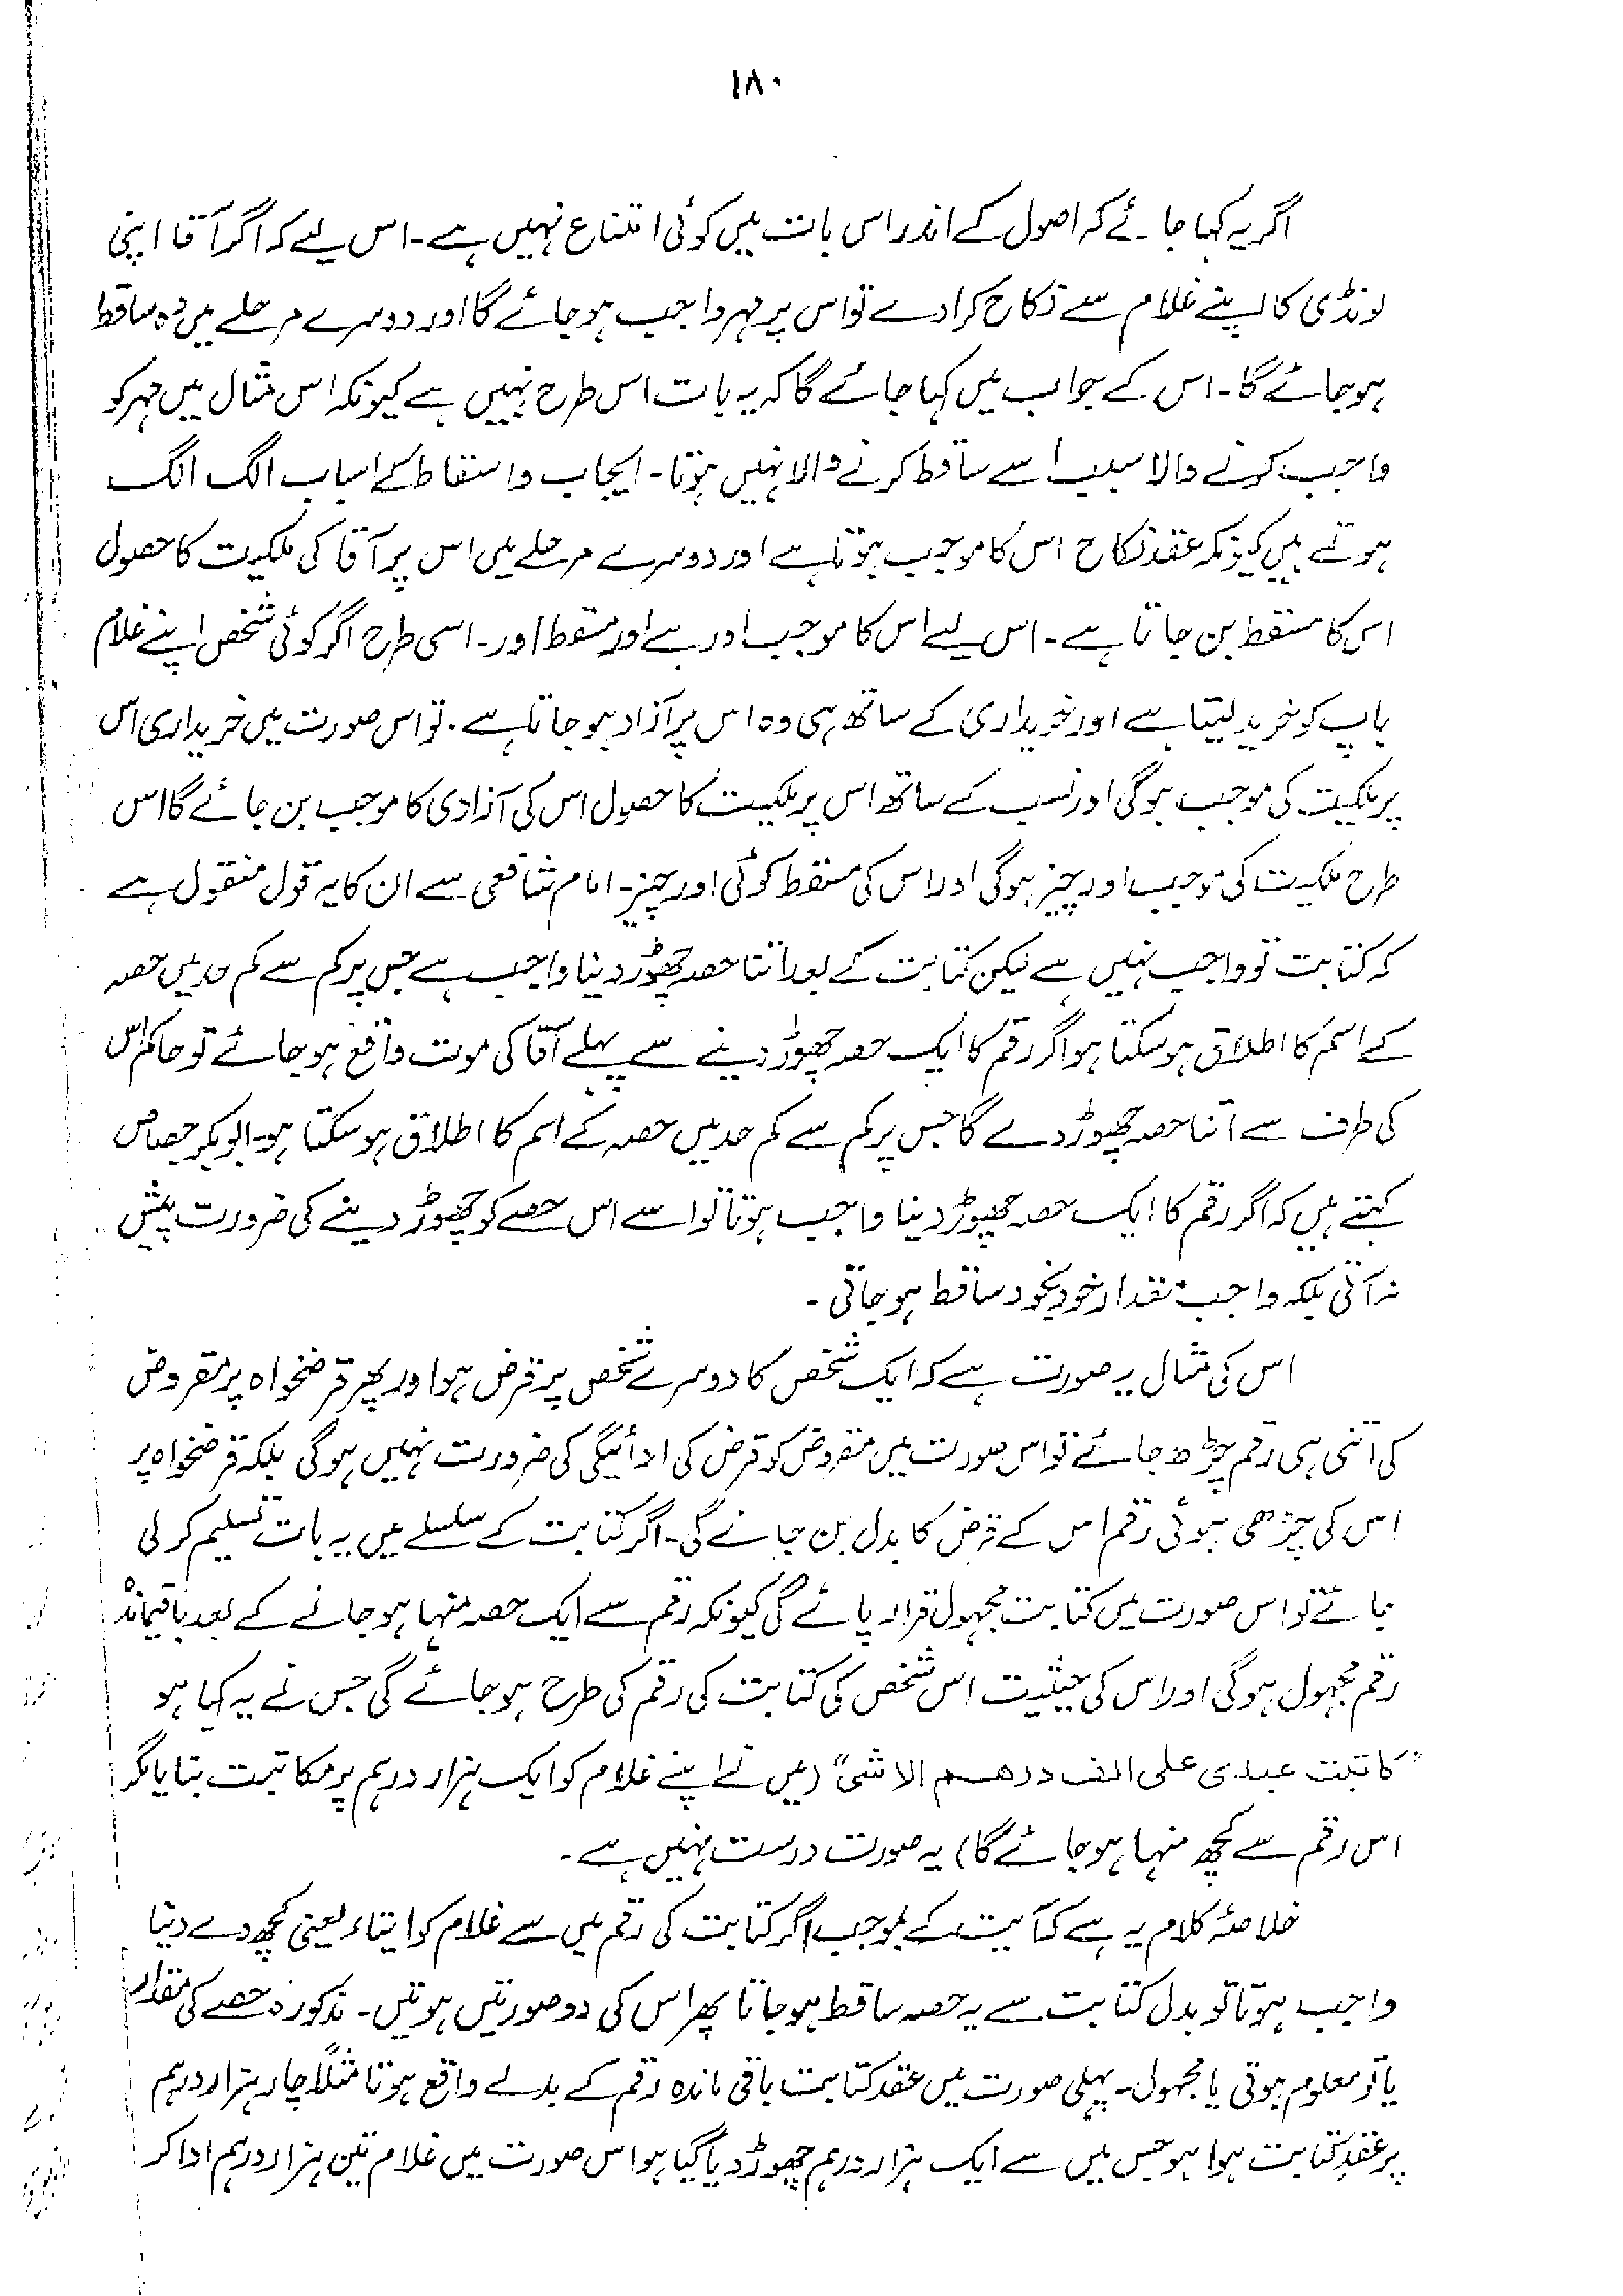 ۱۸۰
اگر یہ کہا جائے کہ اصول کے اندر اس بات میں کوئی امتناع نہیں ہے۔ اس لیے کہ اگر آقا اپنی
لونڈی کا اپنے غلام سے نکاح کرا دے تو اس پر مہر واجب ہو جائے گا اور دوسرے مرحلے میں وہ ساقط
ہو جائے گا۔ اس کے جواب میں کہا جائے گا کہ یہ بات اس طرح نہیں ہے کیونکہ اس مثال میں مہر کو
واجب کرنے والا سبب اسے ساقط کرنے والا نہیں ہوتا۔ ایجاب و اسقاط کے اسباب الگ الگ
ہوتے ہیں کیونکہ عقد نکاح اس کا موجب ہوتا ہے اور دوسرے مرحلے میں اس پر آقا کی ملکیت کا حصول
اس کا مسقط بن جاتا ہے۔ اس لیے اس کا موجب اور ہے اور مسقط اور۔ اسی طرح اگر کوئی شخص اپنے غلام
باپ کو خرید لیتا ہے اور خریداری کے ساتھ ہی وہ اس پر آزاد ہو جاتا ہے۔ تو اس صورت میں خریداری اس
پر ملکیت کی موجب ہوگی اور نسب کے ساتھ اس پر ملکیت کا حصول اس کی آزادی کا موجب بن جائے گا اس
طرح ملکیت کی موجب اور چیز ہوگی اور اس کی مسقط کوئی اور چیز۔ امام شافعی سے ان کا یہ قول منقول ہے
کہ کتابت تو واجب نہیں ہے لیکن کتابت کے بعد اتنا حصہ چھوڑ دینا واجب ہے جس پر کم سے کم حد میں حصہ
کے اسم کا اطلاق ہو سکتا ہو اگر رقم کا ایک حصہ چھوڑ دینے سے پہلے آقا کی موت واقع ہو جائے تو حاکم اس
کی طرف سے اتنا حصہ چھوڑ دے گا جس پر کم سے کم حد میں حصہ کے اسم کا اطلاق ہو سکتا ہو۔ ابوبکر جصاص
کہتے ہیں کہ اگر رقم کا ایک حصہ چھوڑ دینا واجب ہوتا تو اسے اس حصے کو چھوڑ دینے کی ضرورت پیش
نہ آتی بلکہ واجب مقدار خود بخود ساقط ہو جاتی۔
اس کی مثال یہ صورت ہے کہ ایک شخص کا دوسرے شخص پر قرض ہو اور پھر قرضخواہ پر مقروض
کی اتنی ہی رقم چڑھ جائے تو اس صورت میں مقروض کو قرض کی ادائیگی کی ضرورت نہیں ہوگی بلکہ قرضخواہ پر
اس کی چڑھی ہوئی رقم اس کے قرض کا بدل بن جائے گی۔ اگر کتابت کے سلسلے میں یہ بات تسلیم کر لی
جائے تو اس صورت میں کتابت مجہول قرار پائے گی کیونکہ رقم سے ایک حصہ منہا ہو جانے کے بعد باقیماندہ
رقم مجہول ہوگی اور اس کی حیثیت اس شخص کی کتابت کی رقم کی طرح ہو جائے گی جس نے یہ کہا ہو
"کاتبت عبدی علی الف درھم الا شئ" (میں نے اپنے غلام کو ایک ہزار درہم پر مکاتبت بنایا مگر
اس رقم سے کچھ منہا ہو جائے گا) یہ صورت درست نہیں ہے۔
خلاصۂ کلام یہ ہے کہ آیت کے بموجب اگر کتابت کی رقم میں سے غلام کو ایتاء یعنی کچھ دے دینا
واجب ہوتا تو بدل کتابت سے یہ حصہ ساقط ہو جاتا پھر اس کی دو صورتیں ہوتیں۔ مذکورہ حصے کی مقدار
یا تو معلوم ہوتی یا مجہول۔ پہلی صورت میں عقد کتابت باقی ماندہ رقم کے بدلے واقع ہوتا مثلاً چار ہزار درہم
پر عقدِ کتابت ہوا ہو جس میں سے ایک ہزار درہم چھوڑ دیا گیا ہو اس صورت میں غلام تین ہزار درہم ادا کر